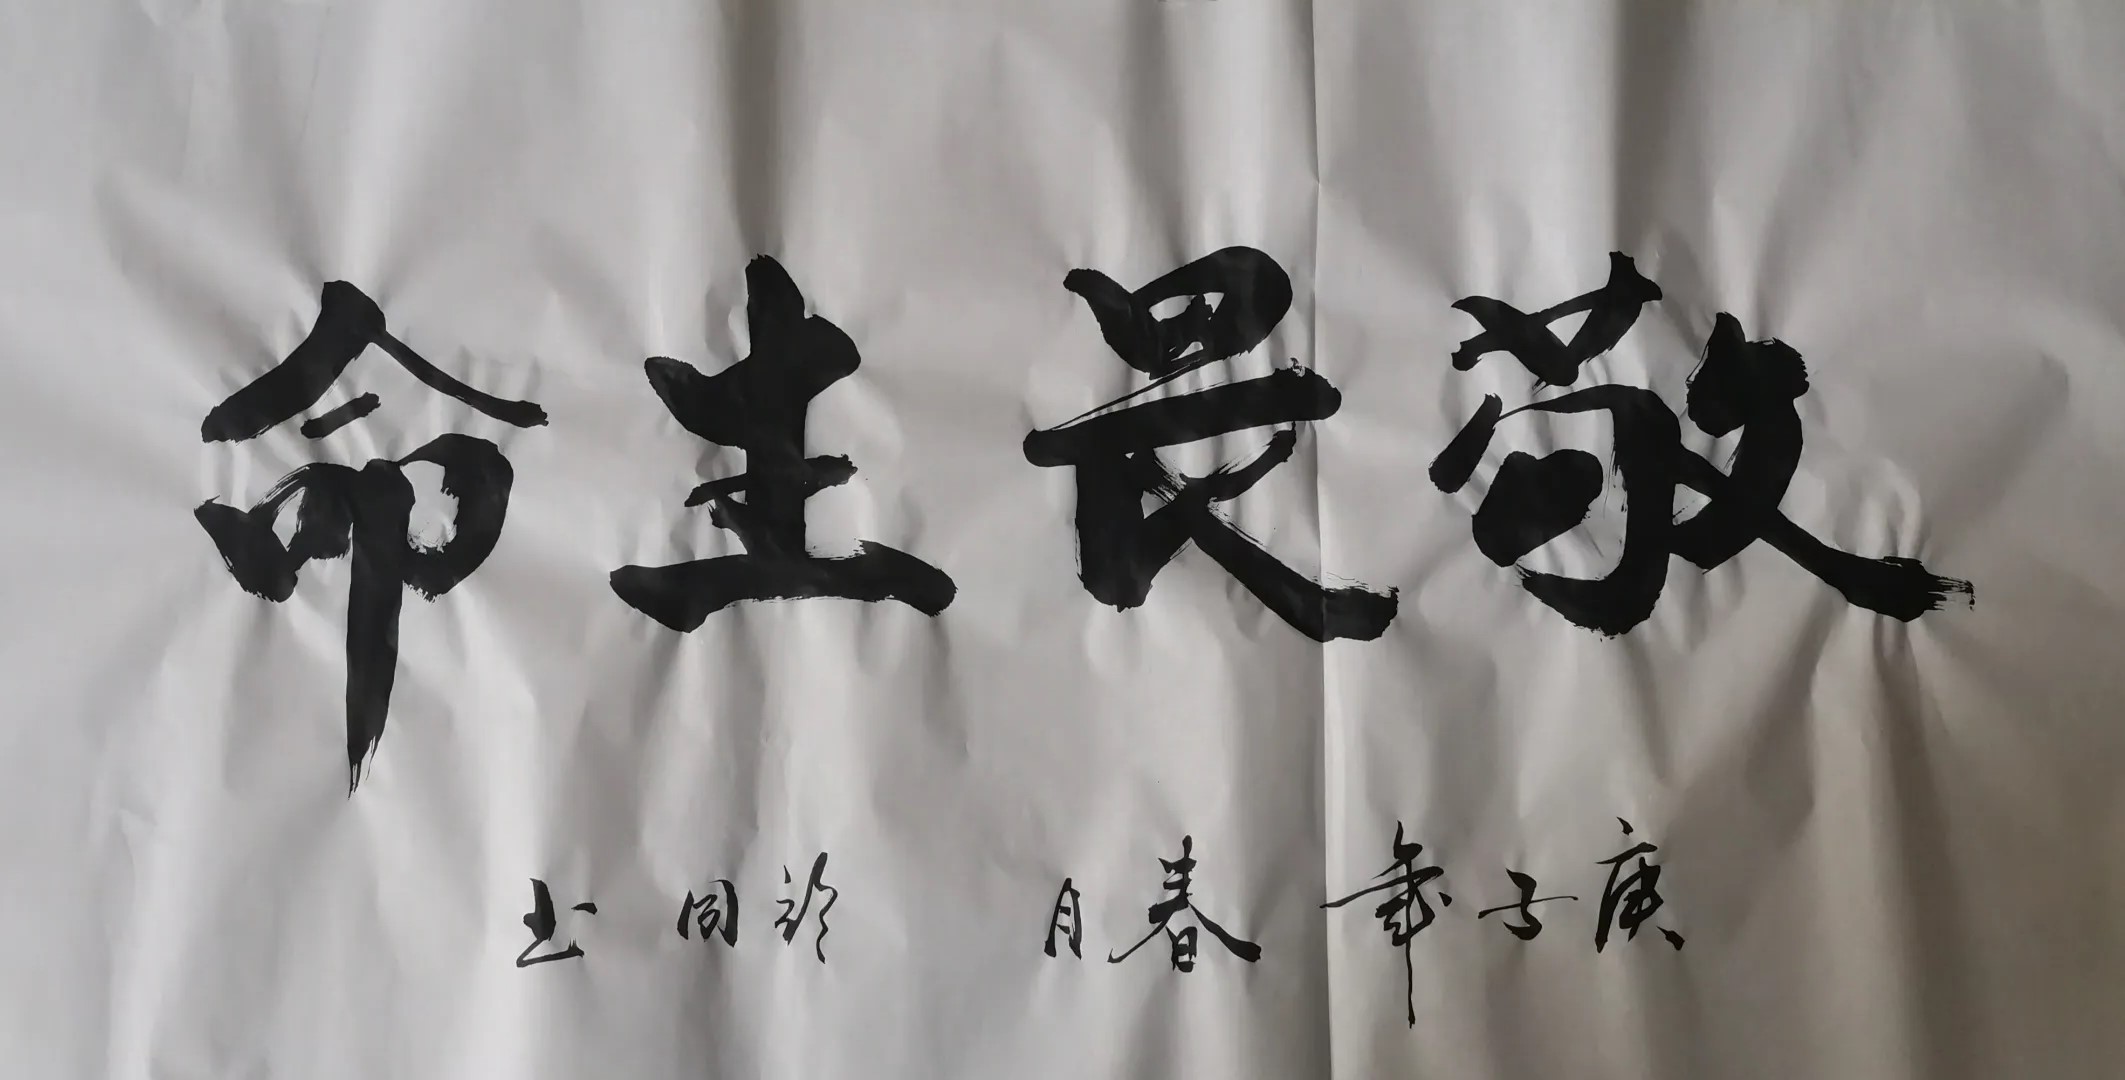 敬畏生命
庚子年春月 同书